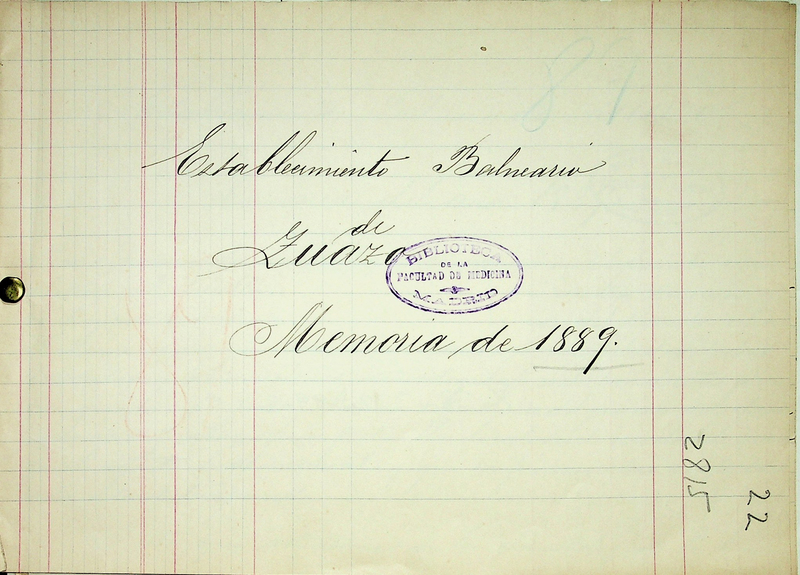 89
Establecimiento Balneario
de
Zuazo
BIBLIOTECA
DE LA
FACULTAD DE MEDICINA
MADRID
Memoria de 1889.
2815
22